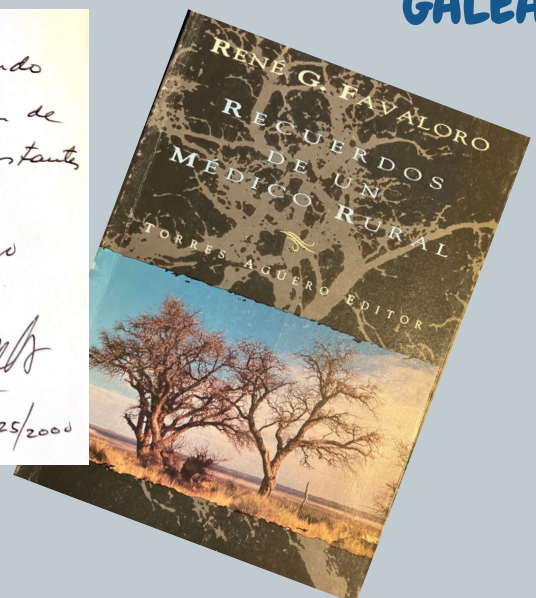 GALEA
ndo
de
stantes
25/2000
RENÉ G. FAVALORO
RECUERDOS
DE UN
MÉDICO RURAL
TORRES AGÜERO EDITOR